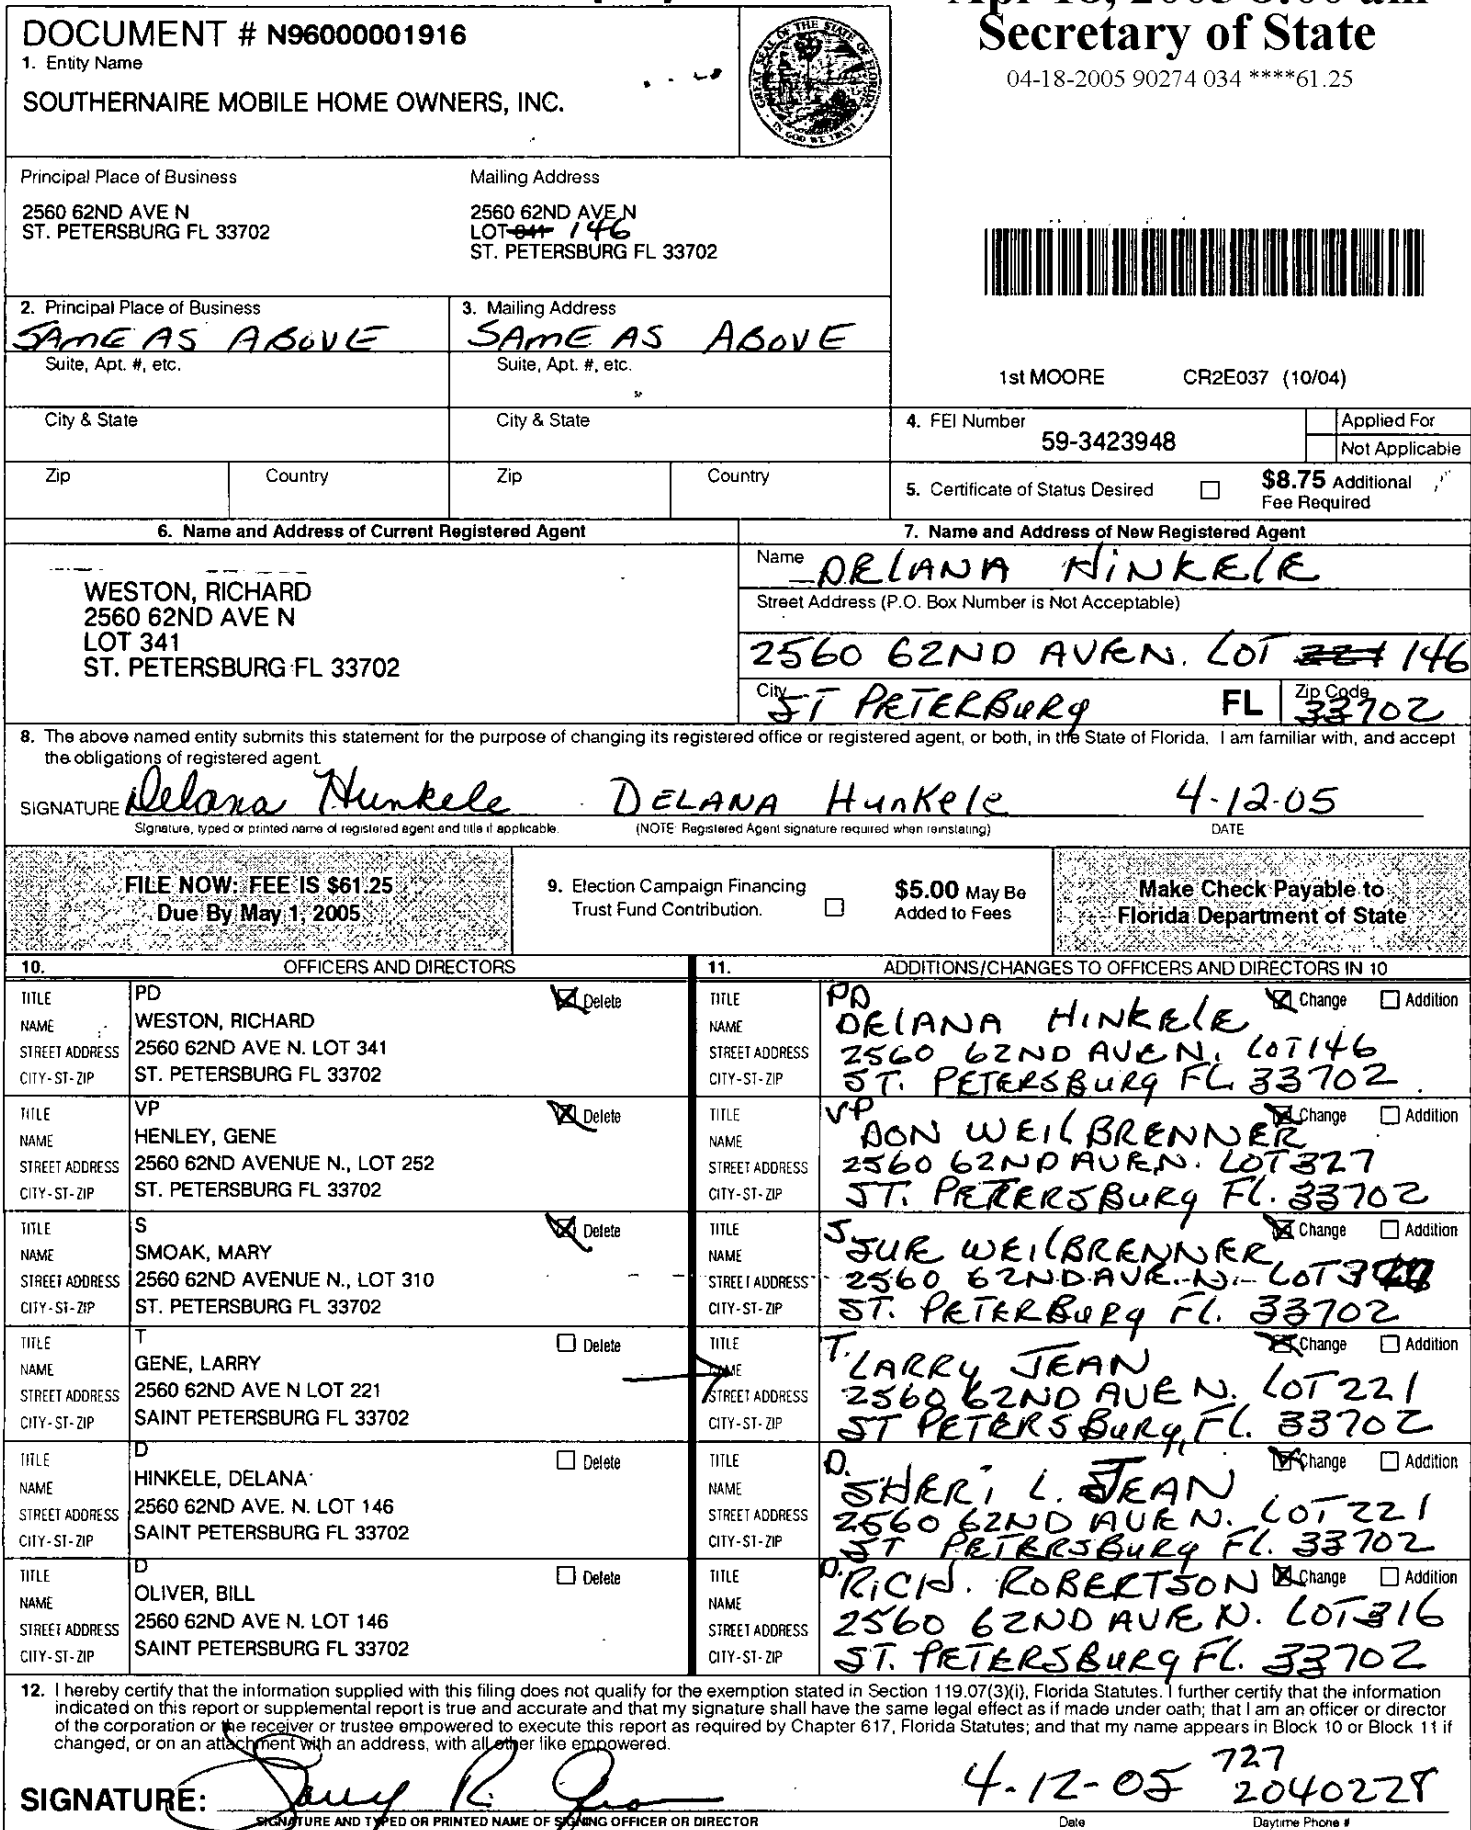 DOCUMENT # N96000001916
Secretary of State
04-18-2005 90274 034 ****61.25
1. Entity Name
SOUTHERNAIRE MOBILE HOME OWNERS, INC.
GREAT SEAL OF THE STATE OF FLORIDA
IN GOD WE TRUST
Principal Place of Business
2560 62ND AVE N
ST. PETERSBURG FL 33702
Mailing Address
2560 62ND AVE N
LOT 341 146
ST. PETERSBURG FL 33702
2. Principal Place of Business
SAME AS ABOVE
Suite, Apt. #, etc.
City & State
Zip Country
3. Mailing Address
SAME AS ABOVE
Suite, Apt. #, etc.
City & State
Zip Country
1st MOORE CR2E037 (10/04)
4. FEI Number
59-3423948
Applied For
Not Applicable
5. Certificate of Status Desired
$8.75 Additional
Fee Required
6. Name and Address of Current Registered Agent
WESTON, RICHARD
2560 62ND AVE N
LOT 341
ST. PETERSBURG FL 33702
7. Name and Address of New Registered Agent
Name DELANA HINKELE
Street Address (P.O. Box Number is Not Acceptable)
2560 62ND AVE N. LOT 221 146
City ST PETERBURG FL Zip Code 33702
8. The above named entity submits this statement for the purpose of changing its registered office or registered agent, or both, in the State of Florida. I am familiar with, and accept
the obligations of registered agent.
SIGNATURE Delana Hunkele DELANA HunKele 4-12-05
Signature, typed or printed name of registered agent and title if applicable. (NOTE: Registered Agent signature required when reinstating) DATE
FILE NOW: FEE IS $61.25
Due By May 1, 2005
9. Election Campaign Financing
Trust Fund Contribution.
$5.00 May Be
Added to Fees
Make Check Payable to
Florida Department of State
10. OFFICERS AND DIRECTORS
TITLE PD Delete
NAME WESTON, RICHARD
STREET ADDRESS 2560 62ND AVE N. LOT 341
CITY-ST-ZIP ST. PETERSBURG FL 33702
TITLE VP Delete
NAME HENLEY, GENE
STREET ADDRESS 2560 62ND AVENUE N., LOT 252
CITY-ST-ZIP ST. PETERSBURG FL 33702
TITLE S Delete
NAME SMOAK, MARY
STREET ADDRESS 2560 62ND AVENUE N., LOT 310
CITY-ST-ZIP ST. PETERSBURG FL 33702
TITLE T Delete
NAME GENE, LARRY
STREET ADDRESS 2560 62ND AVE N LOT 221
CITY-ST-ZIP SAINT PETERSBURG FL 33702
TITLE D Delete
NAME HINKELE, DELANA
STREET ADDRESS 2560 62ND AVE. N. LOT 146
CITY-ST-ZIP SAINT PETERSBURG FL 33702
TITLE D Delete
NAME OLIVER, BILL
STREET ADDRESS 2560 62ND AVE N. LOT 146
CITY-ST-ZIP SAINT PETERSBURG FL 33702
11. ADDITIONS/CHANGES TO OFFICERS AND DIRECTORS IN 10
TITLE PD Change Addition
NAME DELANA HINKELE
STREET ADDRESS 2560 62ND AVE N. LOT 146
CITY-ST-ZIP ST. PETERSBURG FL 33702
TITLE VP Change Addition
NAME DON WEILBRENNER
STREET ADDRESS 2560 62ND AVE N. LOT 327
CITY-ST-ZIP ST. PETERERSBURG FL. 33702
TITLE S Change Addition
NAME SUE WEILBRENNER
STREET ADDRESS 2560 62ND AVE. N. LOT
CITY-ST-ZIP ST. PETERBURG FL. 33702
TITLE T. Change Addition
NAME LARRY JEAN
STREET ADDRESS 2560 62ND AVE N. LOT 221
CITY-ST-ZIP ST PETERSBURG, FL. 33702
TITLE D. Change Addition
NAME SHERI L. JEAN
STREET ADDRESS 2560 62ND AVE N. LOT 221
CITY-ST-ZIP ST PETERSBURG FL. 33702
TITLE D. Change Addition
NAME RICH. ROBERTSON
STREET ADDRESS 2560 62ND AVE N. LOT 316
CITY-ST-ZIP ST. PETERSBURG FL. 33702
12. I hereby certify that the information supplied with this filing does not qualify for the exemption stated in Section 119.07(3)(i), Florida Statutes. I further certify that the information
indicated on this report or supplemental report is true and accurate and that my signature shall have the same legal effect as if made under oath; that I am an officer or director
of the corporation or the receiver or trustee empowered to execute this report as required by Chapter 617, Florida Statutes; and that my name appears in Block 10 or Block 11 if
changed, or on an attachment with an address, with all other like empowered.
SIGNATURE: Larry R. Jean 4-12-05 727 2040228
SIGNATURE AND TYPED OR PRINTED NAME OF SIGNING OFFICER OR DIRECTOR Date Daytime Phone #